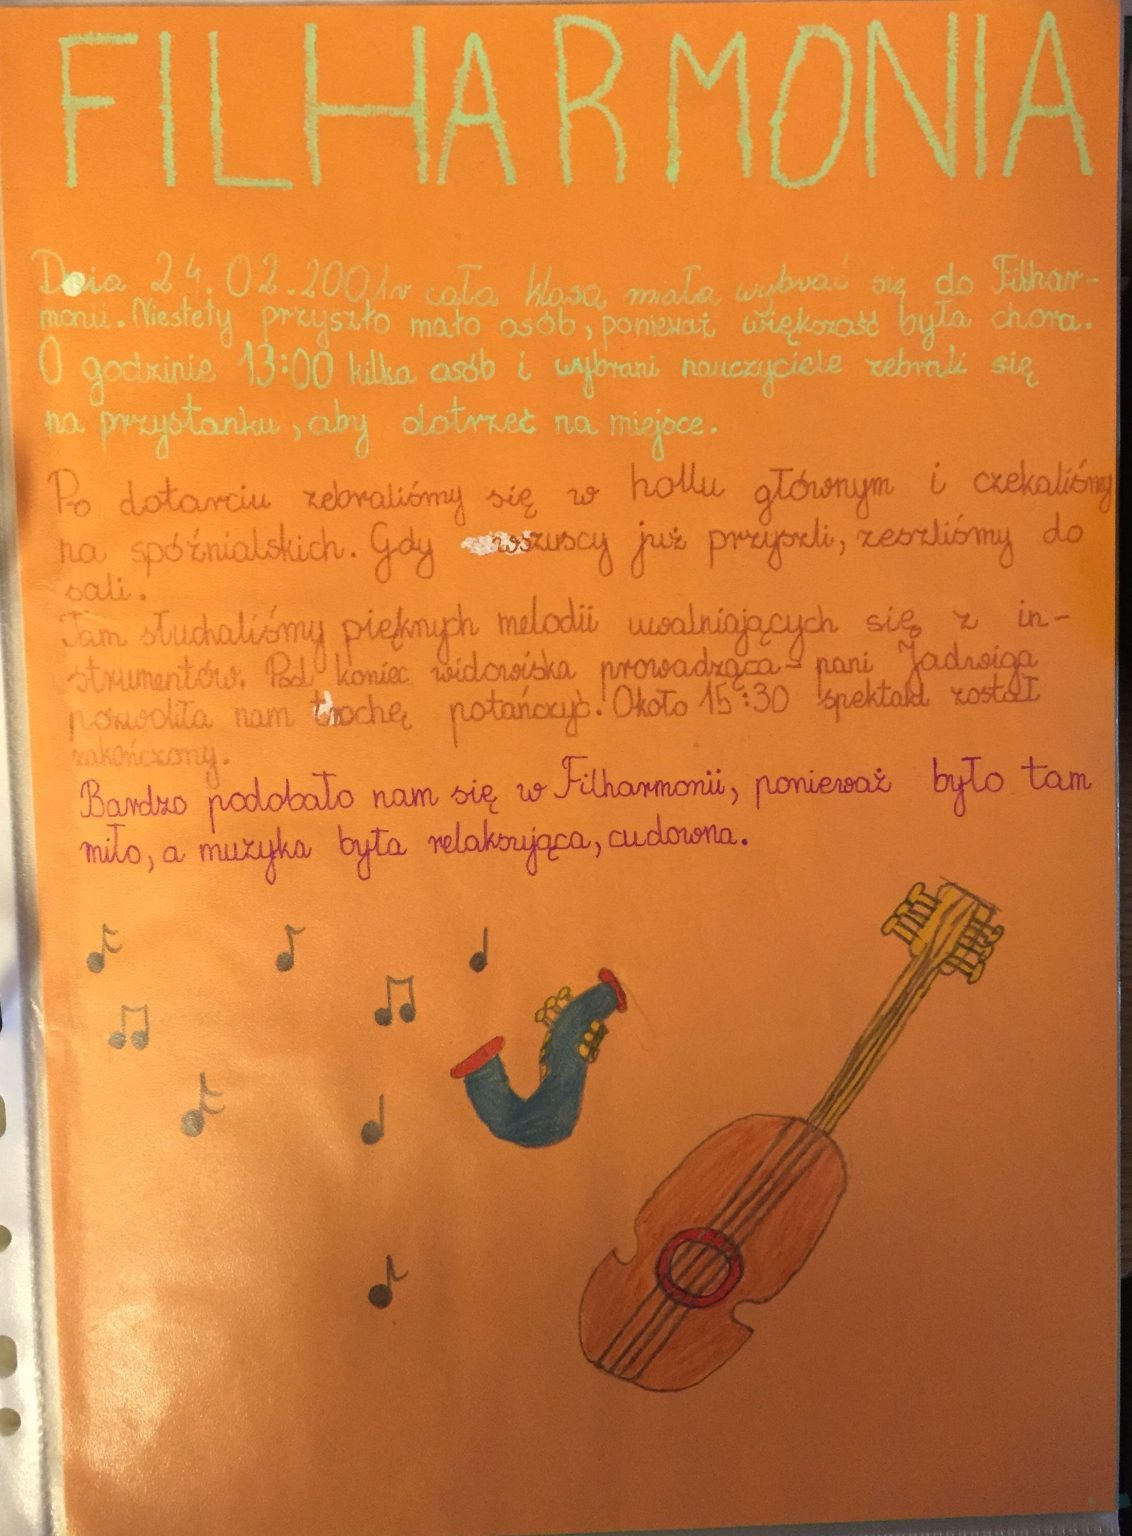 FILHARMONIA
Dnia 24.02.2001r cała klasa miała wybrać się do Filhar-
monii. Niestety przyszło mało osób, ponieważ większość była chora.
O godzinie 13:00 kilka osób i wybrani nauczyciele zebrali się
na przystanku, aby dotrzeć na miejsce.
Po dotarciu zebraliśmy się w hollu głównym i czekaliśmy
na spóźnialskich. Gdy wszyscy już przyszli, zeszliśmy do
sali.
Tam słuchaliśmy pięknych melodii uwalniających się z in-
strumentów. Pod koniec widowiska prowadząca - pani Jadwiga
pozwoliła nam trochę potańczyć. Około 15:30 spektakl został
zakończony.
Bardzo podobało nam się w Filharmonii, ponieważ było tam
miło, a muzyka była relaksująca, cudowna.